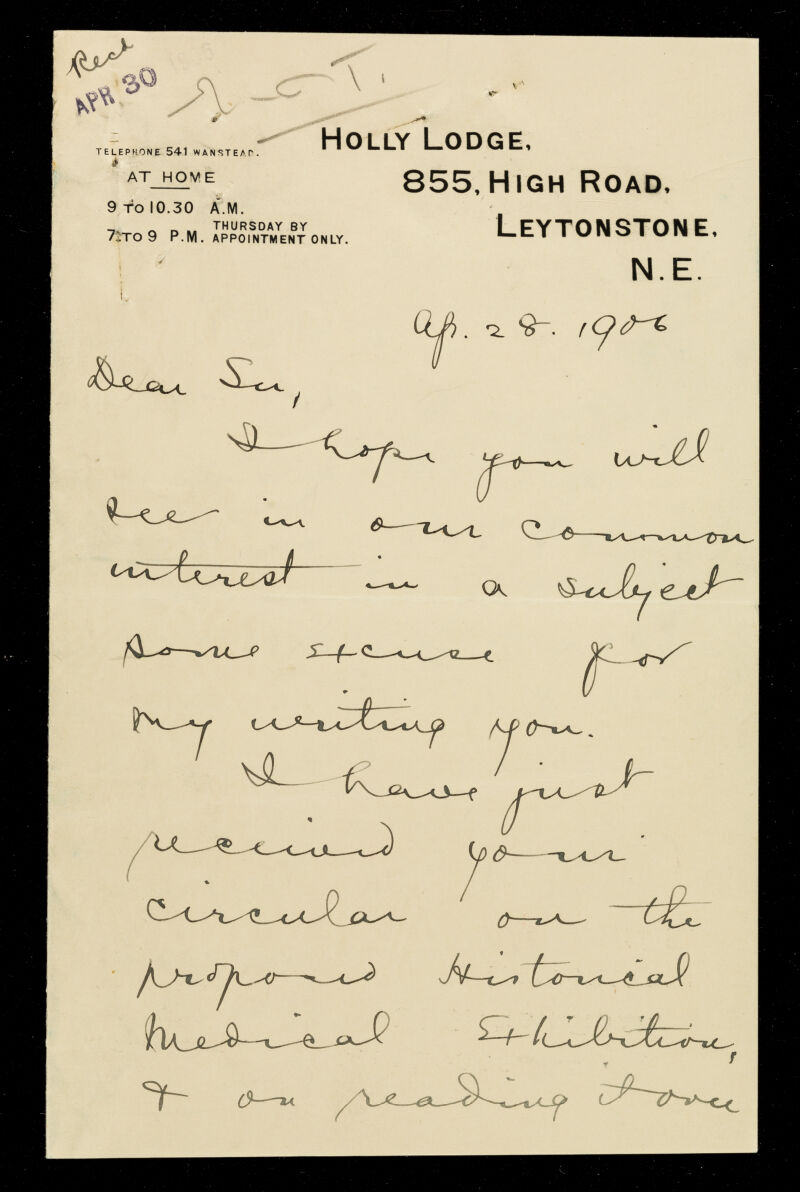 Recd
APR 30
TELEPHONE 541 WANSTEAD.
AT HOME
9 TO 10.30 A.M.
7 TO 9 P.M. THURSDAY BY APPOINTMENT ONLY.
HOLLY LODGE,
855, HIGH ROAD,
LEYTONSTONE,
N.E.
Ap. 28. 1906
Dear Sir,
I hope you will
see in our common
interest in a subject
some excuse for
my writing you.
I have just
received your
circular on the
proposed Historical
Medical Exhibition,
& on reading it over